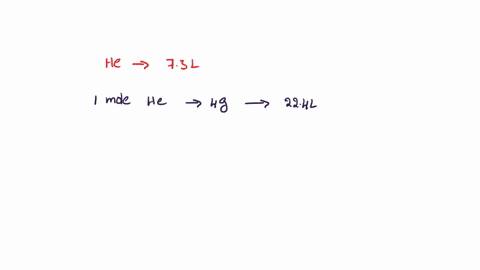 He → 7.3L
1 mole He → 4g → 22.4L